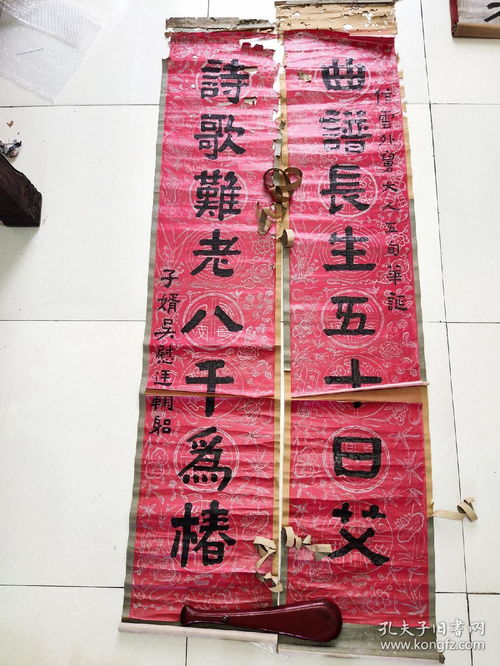 曲譜長生五十日艾
雲外舅大人五旬華誕
詩歌難老八千為椿
子婿吳慰鞠躬
孔夫子旧书网
www.kongfz.com